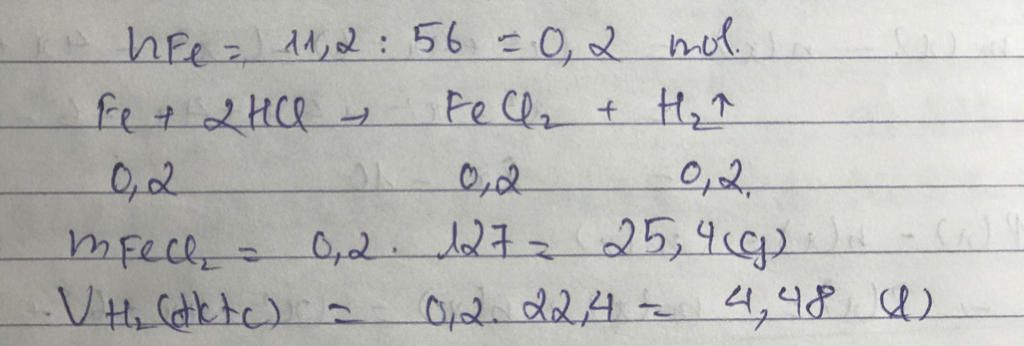 nFe = 11,2 : 56 = 0,2 mol.
Fe + 2HCl → FeCl₂ + H₂↑
0,2 0,2 0,2.
mFeCl₂ = 0,2 . 127 = 25,4 (g)
VH₂(đktc) = 0,2. 22,4 = 4,48 (l)